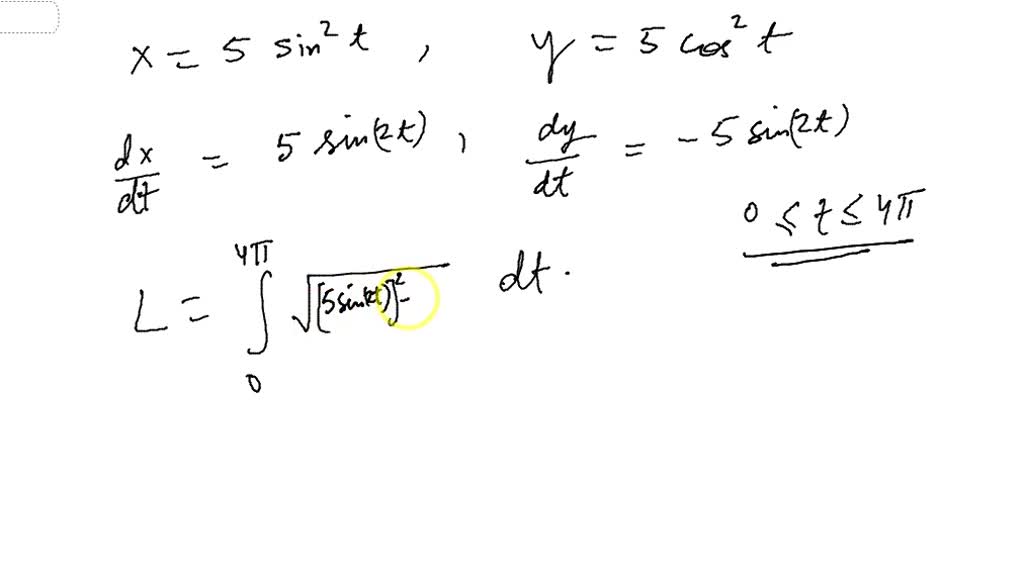 x = 5 sin² t , y = 5 cos² t
dx/dt = 5 sin(2t) , dy/dt = - 5 sin(2t)
0 ≤ t ≤ 4π
L = ∫₀^4π √[5 sin(2t)]² - dt .